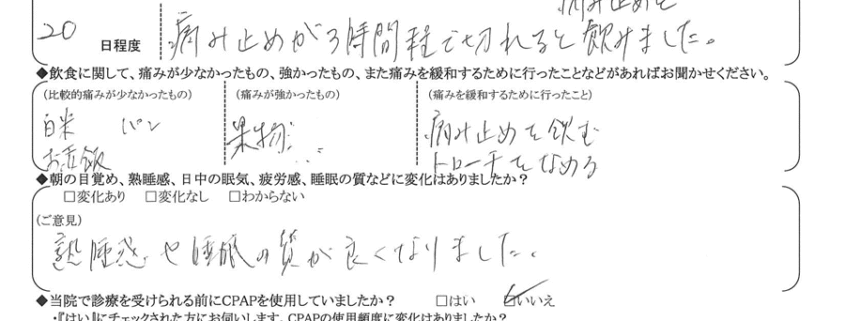 痛み止めを
20 日程度 痛み止めが3時間程で切れると飲みました。
◆飲食に関して、痛みが少なかったもの、強かったもの、また痛みを緩和するために行ったことなどがあればお聞かせください。
(比較的痛みが少なかったもの) (痛みが強かったもの) (痛みを緩和するために行ったこと)
白米 パン 果物 痛み止めを飲む
トローチをなめる
◆朝の目覚め、熟睡感、日中の眠気、疲労感、睡眠の質などに変化はありましたか?
□変化あり □変化なし □わからない
(ご意見)
熟睡感や睡眠の質が良くなりました。
◆当院で診療を受けられる前にCPAPを使用していましたか? □はい ☑いいえ
・『はい』にチェックされた方にお伺いします。CPAPの使用頻度に変化はありましたか?